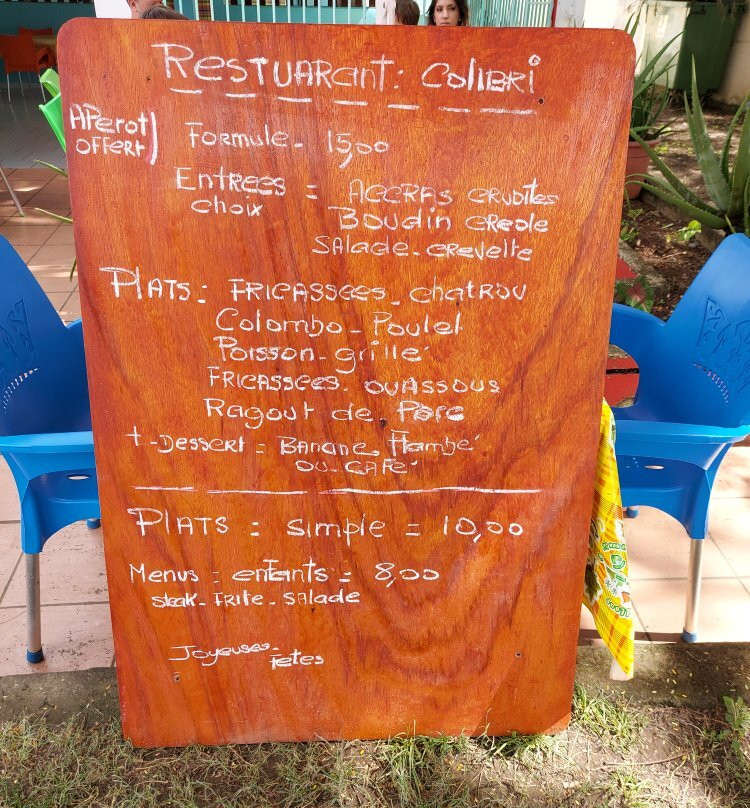 RESTUARANT: COLIBRI
APEROT OFFERT)
FORMULE - 15,00
ENTREES = ACCRAS CRUDITES
choix BOUDIN CREOLE
SALADE - CREVETTE
PLATS: FRICASSEES - chatROU
Colombo - Poulet
Poisson - grillé
FRICASSEES - OUASSOUS
Ragout de Porc
+ - DESSERT = BANANE Flambé
OU - CAFÉ
PLATS = simple = 10,00
Menus = enfants = 8,00
steak - FRITE - SALADE
Joyeuses -
Fetes